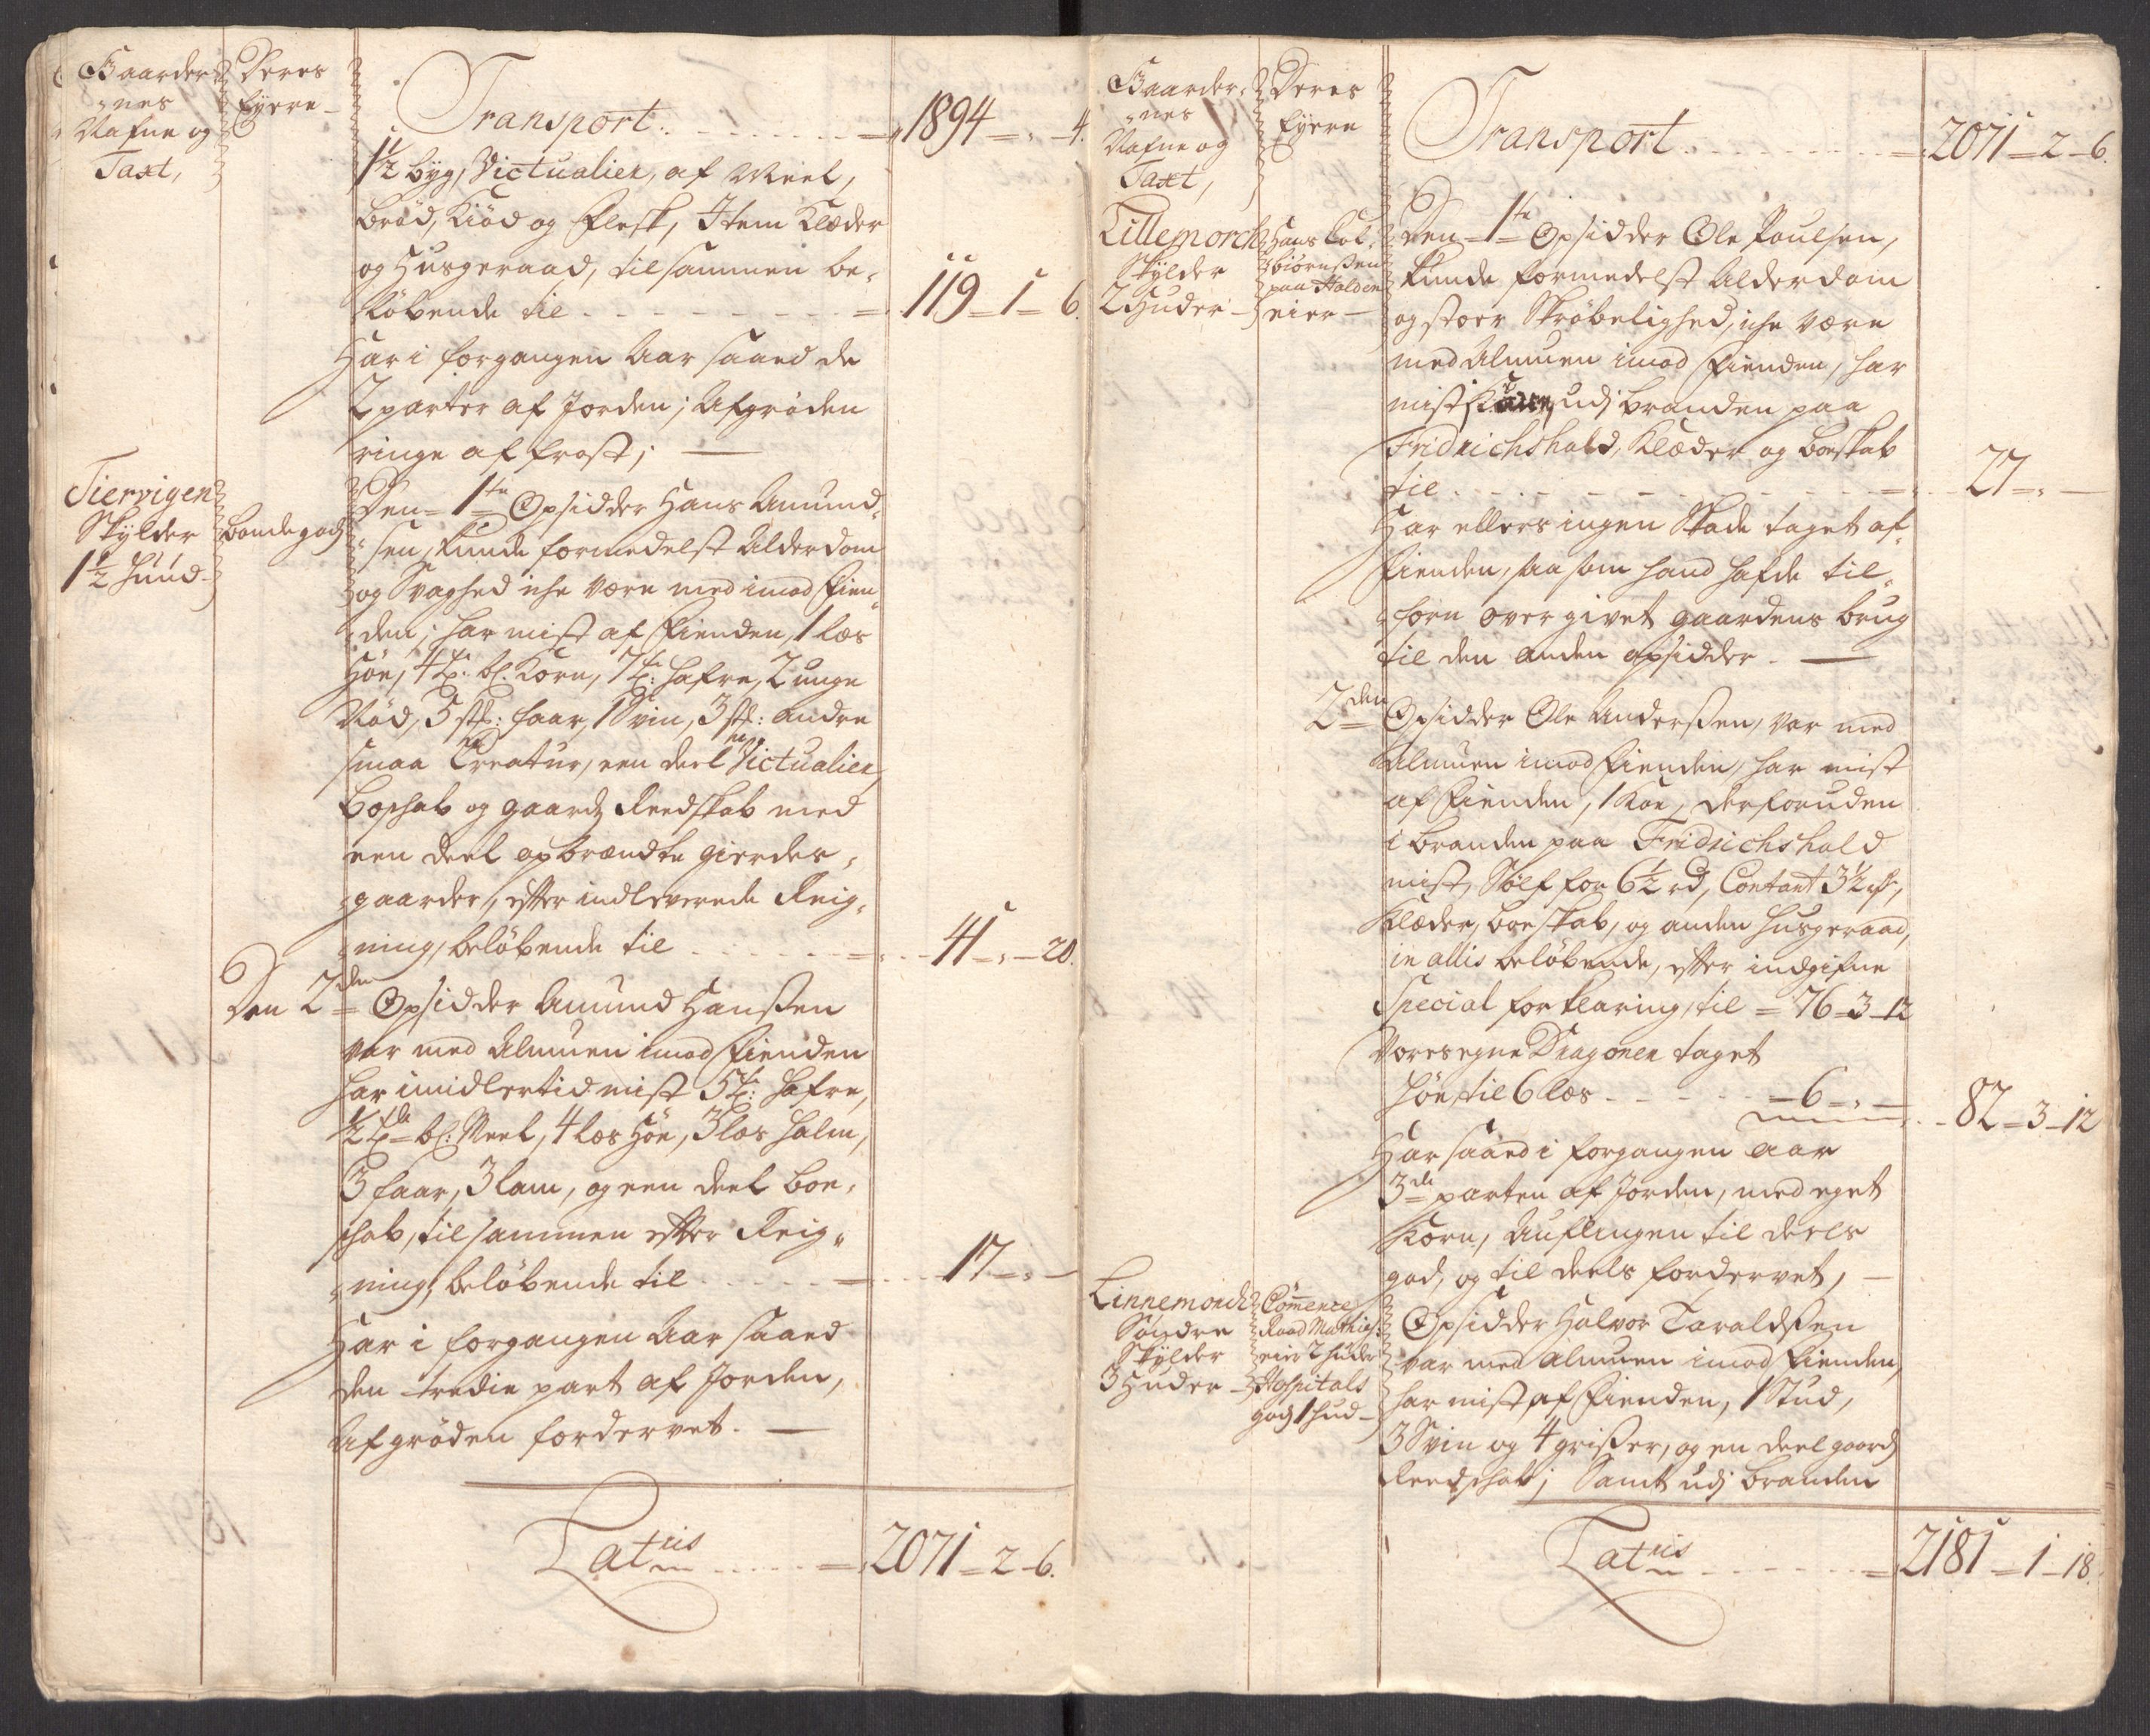 Gaarder-
nes
Nafne og
Taxt,
Deres
Eyere
Transport 1894 – „ – 4.
1½ byg, Victualier, af Meel,
brød, Kiød og Flesk, Item Klæder
og Husgeraad, tilsammen be-
løbende til 119 – 1 – 6.
Har i forgangen Aar saaed de
2 parter af Jorden; Afgrøden
ringe af frost;
Tiervigen
Skylder
1½ Huud
bondegods
Den 1te Opsidder Hans Amund-
sen, kunde formedelst Alderdom
og Svaghed iche være med imod Fien-
den; har mist af Fienden, 1 læs
Høe, 4 t: bl. Korn, 7 t: hafre, 2 unge
Nød, 5 stk: faar, 1 Svin, 3 stk: andre
smaa Creatur, een deel Victualier,
Boschab og gaards Reedskab med
een deel opbrændte gierdes-
gaarder, efter indleverede Reig-
ning, beløbende til 41 – „ – 20.
Den 2den Opsidder Amund Hanssen
var med Almuen imod Fienden
har imidlertid mist 5 t: hafre,
½ td bl: Meel, 4 læs Høe, 3 læs halm,
3 faar, 3 lam, og een deel boe-
schab, tilsammen efter Reig-
ning, beløbende til 17 – „ –
Har i forgangen Aar saaed
den tredie part af Jorden,
Afgrøden fordervet.
Latus 2071 – 2 – 6.
Gaarder-
nes
Nafne og
Taxt,
Deres
Eyere
Transport 2071 – 2 – 6.
Lillemorch
Skylder
2 Huder
Hans Col-
biørnssen
paa Halden
eier
Den 1te Opsidder Ole Poulsen,
kunde formedelst Alderdom
og stoer Skrøbelighed, iche være
med Almuen imod Fienden, har
mist udj branden paa
Fridrichshald, Klæder og boeskab
til 27 – „ –
Har ellers ingen Skade taget af
Fienden, saasom hand hafde til-
forn overgivet gaardens brug
til den anden opsidder.
2den Opsidder Ole Anderssen, var med
Almuen imod Fienden, har mist
af Fienden, 1 Koe, derforuden
i branden paa Fridrichshald
mist, Sølf for 6½ rd, Contant 3½ rdr,
Klæder, boeskab, og anden husgeraad,
in allis beløbende, efter indgifne
Special forklaring, til = 76 – 3 – 12
Vores egne Dragoner taget
Høe til 6 læs – 6 – „ – 82 – 3 – 12
Har saaed i forgangen aar
3de parten af Jorden, med eget
Korn, Auflingen til deels
god, og til deels fordervet,
Linnemorch
Søndre
Skylder
3 Huder
Commerce
Raad Mathies:
eier 2 huder
Hospitals
gods 1 hud
Opsidder Halvor Taraldssen
var med Almuen imod Fienden,
har mist af Fienden, 1 Stud,
3 Svin og 4 grisser, og en deel gaards
Reedschab; Samt udj branden
Latus 2181 – 1 – 18.